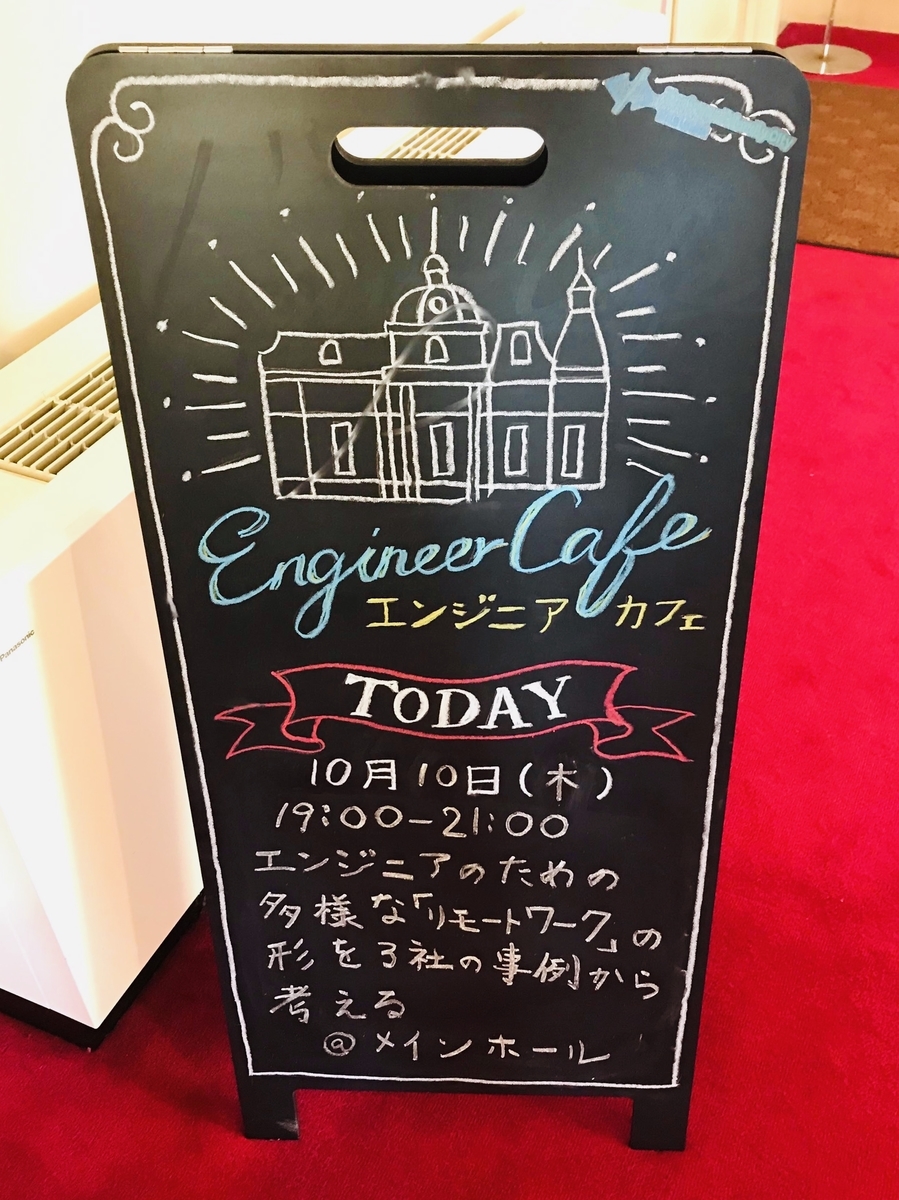 Engineer Cafe
エンジニア カフェ
TODAY
10月10日(木)
19:00-21:00
エンジニアのための
多様な「リモートワーク」の
形を3社の事例から
考える
@メインホール
Panasonic